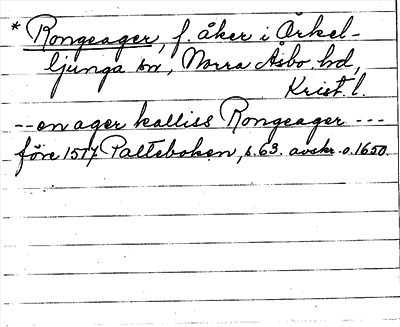 * Rongeager, f. åker i Örkel-
ljunga sn, Norra Åsbo hd,
Krist. l.
-- en ager kalliss Rongeager ---
före 1517 Palteboken, s. 63. avskr. o. 1650.